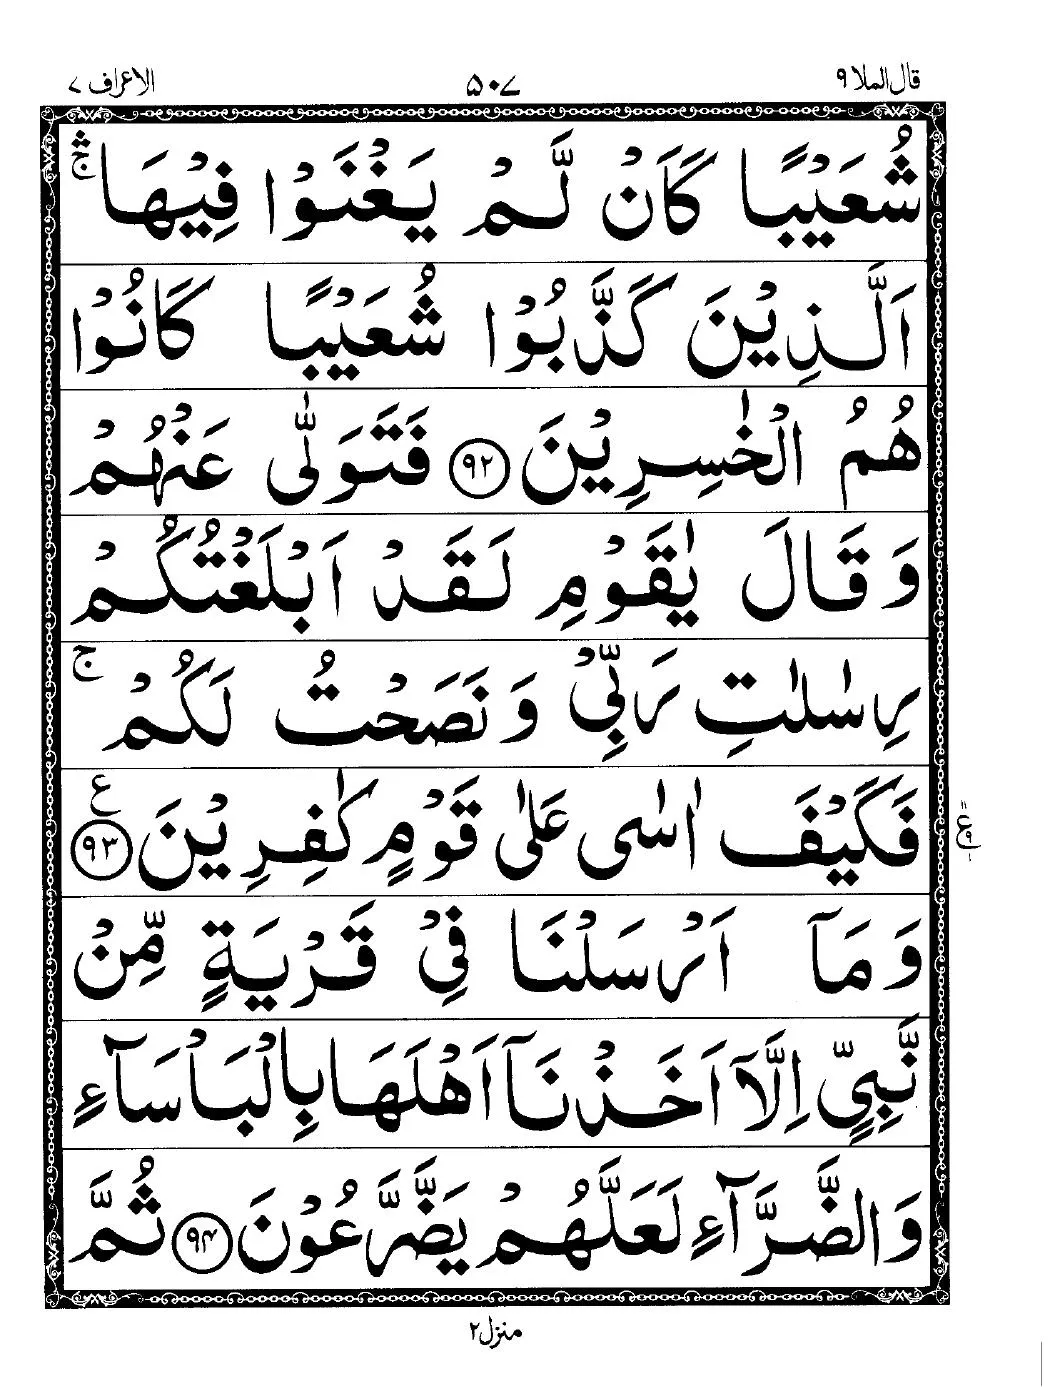 قال الملا ٩ ٥٠٧ الاعراف ٧
شُعَيْبًا كَاَنْ لَّمْ يَغْنَوْا فِيْهَا ۛۚ
اَلَّذِيْنَ كَذَّبُوْا شُعَيْبًا كَانُوْا
هُمُ الْخٰسِرِيْنَ ﴿٩٢﴾ فَتَوَلّٰى عَنْهُمْ
وَقَالَ يٰقَوْمِ لَقَدْ اَبْلَغْتُكُمْ
رِسٰلٰتِ رَبِّيْ وَنَصَحْتُ لَكُمْ ۚ
فَكَيْفَ اٰسٰى عَلٰى قَوْمٍ كٰفِرِيْنَ ﴿٩٣﴾ ع
وَمَآ اَرْسَلْنَا فِيْ قَرْيَةٍ مِّنْ
نَّبِيٍّ اِلَّآ اَخَذْنَآ اَهْلَهَا بِالْبَاْسَآءِ
وَالضَّرَّآءِ لَعَلَّهُمْ يَضَّرَّعُوْنَ ﴿٩٤﴾ ثُمَّ
منزل ٢